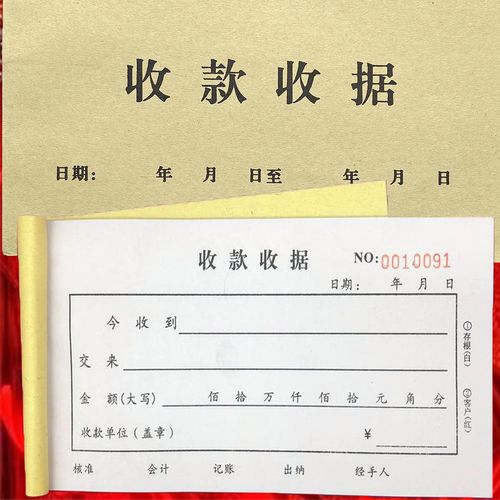 收款收据
日期： 年 月 日至 年 月 日
收款收据 NO:0010091
日期： 年 月 日
今收到
交来
金额(大写) 佰拾万仟佰拾元角分
收款单位(盖章) ¥
核准 会计 记账 出纳 经手人
①存根(白)
②客户(红)